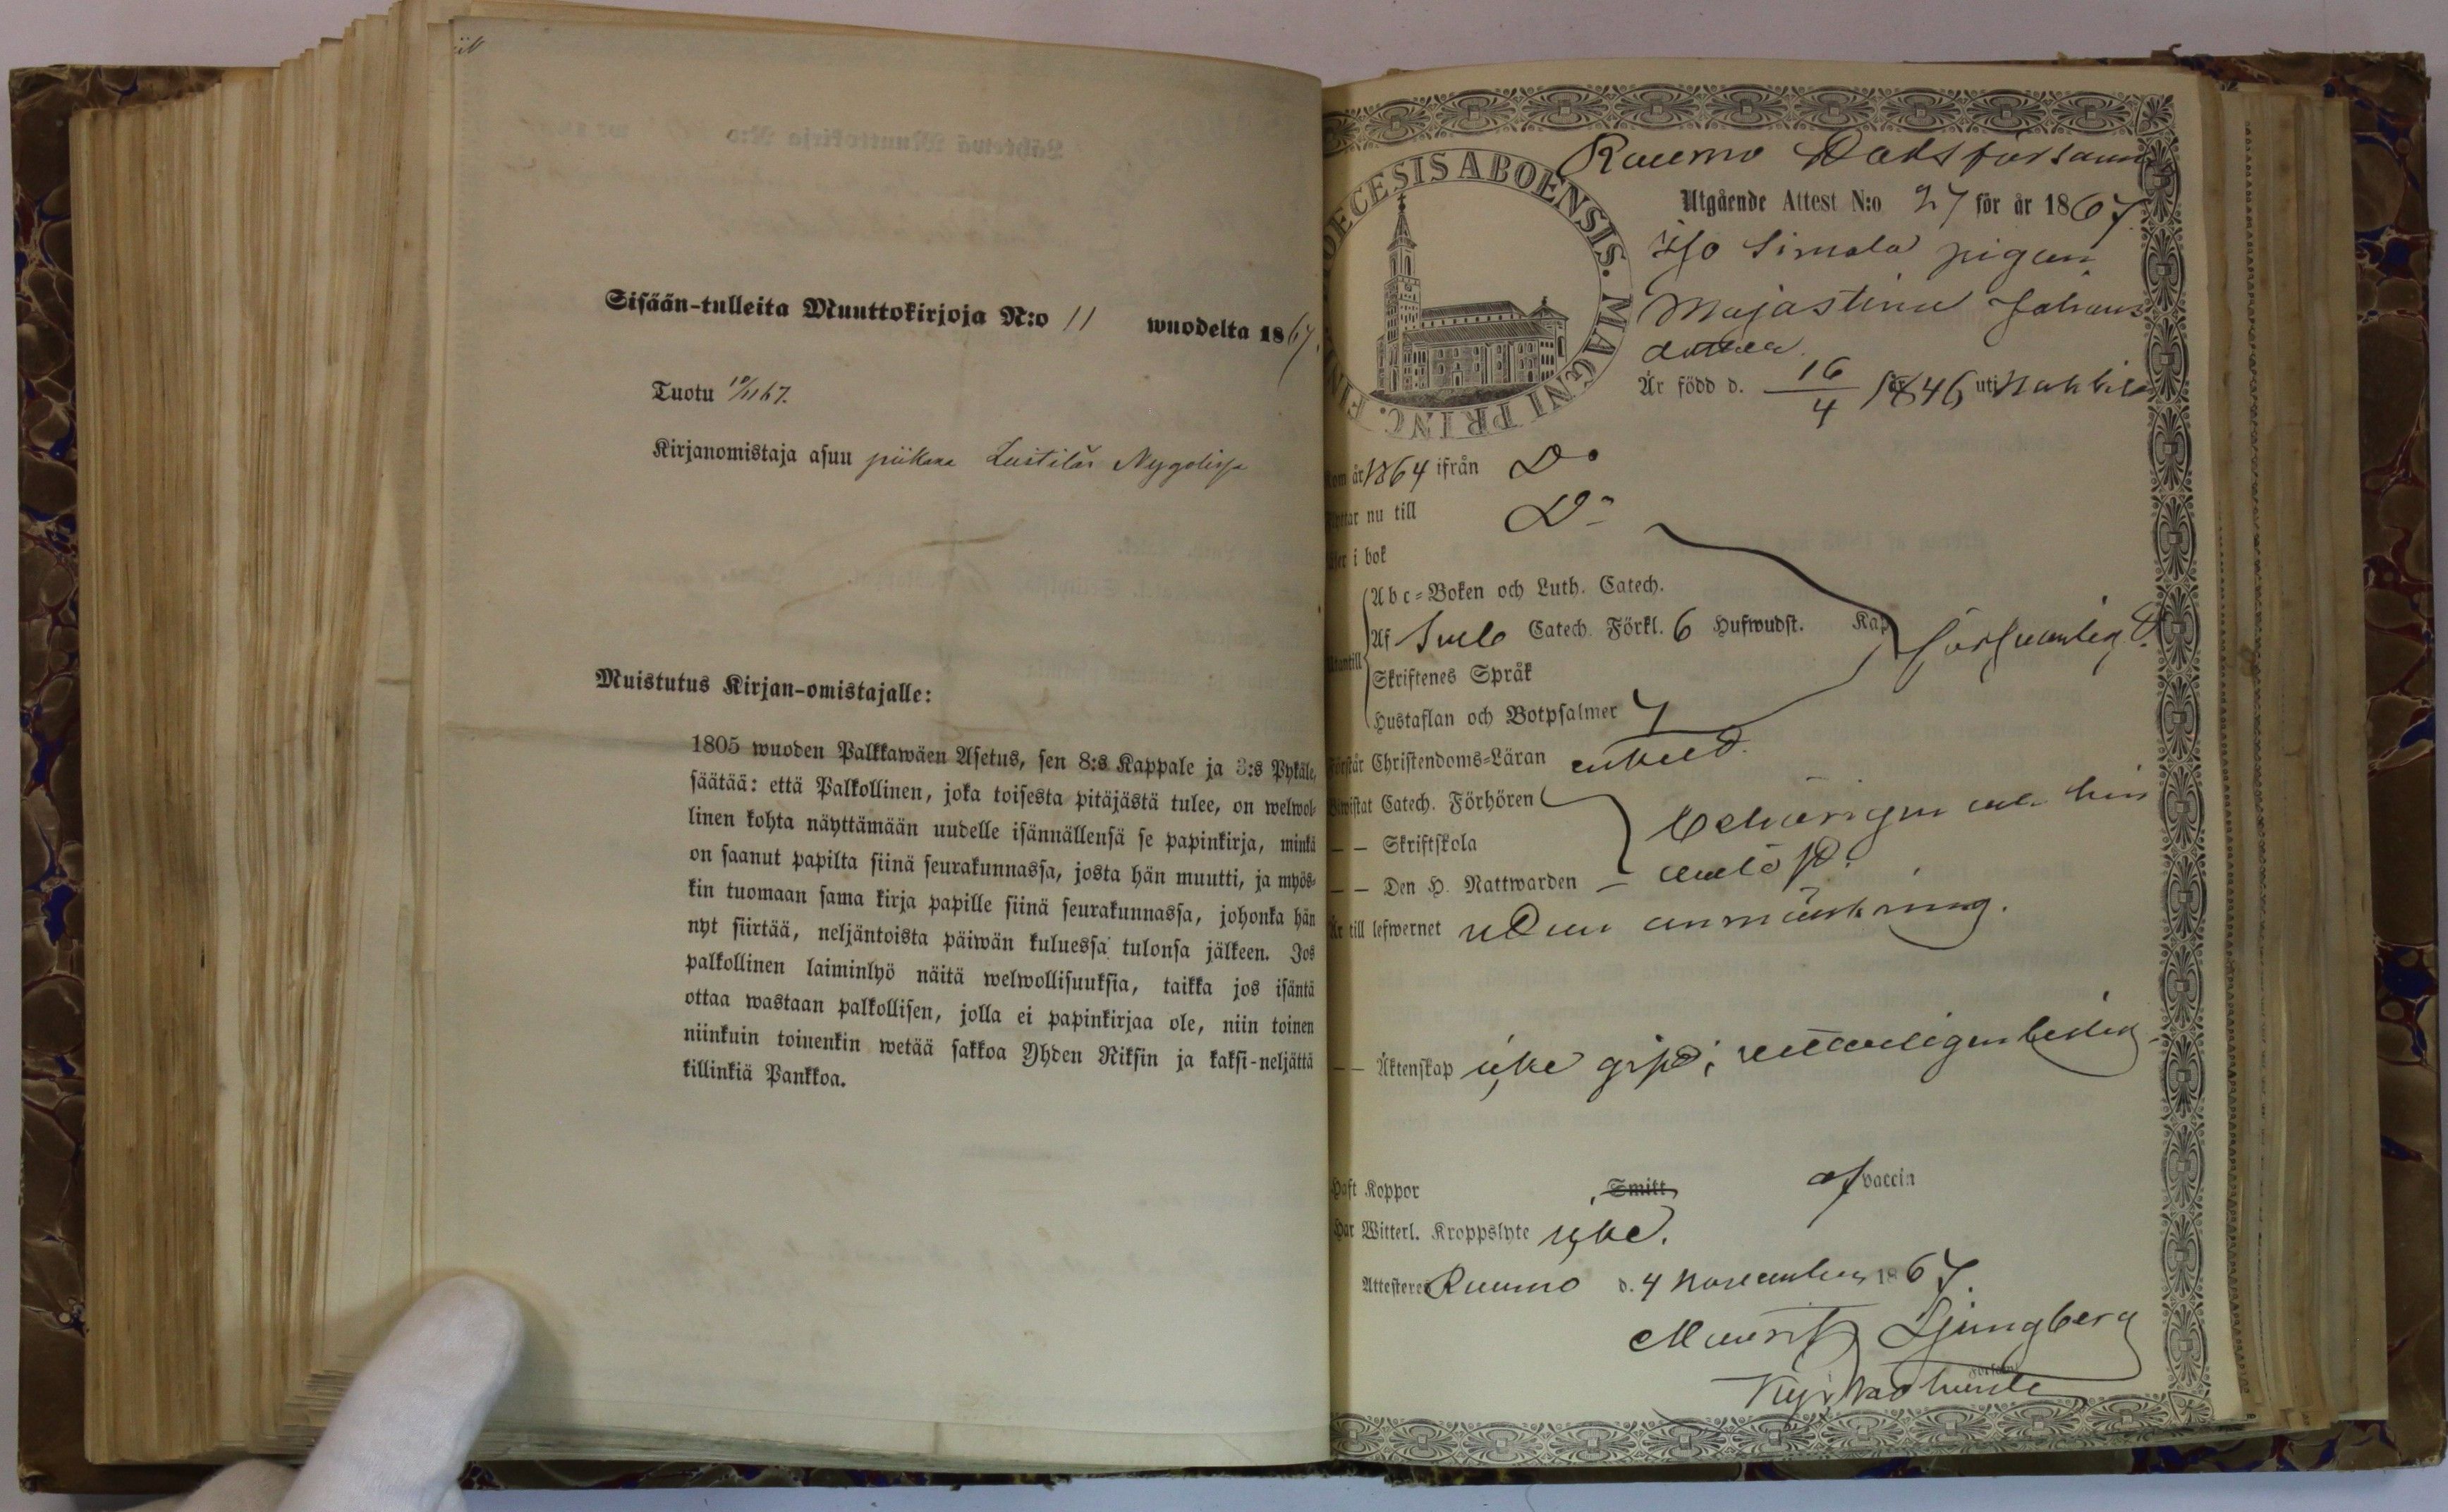 Sisään-tulleita Muuttokirjoja N:o 11 wuodelta 1867.
Tuotu 10/11 67.
Kirjanomistaja asuu piikana
Muistutus Kirjan-omistajalle:
1805 wuoden Palkkawäen Asetus, sen 8:s Kappale ja 3:s Pykäle,
säätää: että Palkollinen, joka toisesta pitäjästä tulee, on welwol-
linen kohta näyttämään uudelle isännällensä se papinkirja, minkä
on saanut papilta siinä seurakunnassa, josta hän muutti, ja myös-
kin tuomaan sama kirja papille siinä seurakunnassa, johonka hän
nyt siirtää, neljäntoista päiwän kuluessa tulonsa jälkeen. Jos
palkollinen laiminlyö näitä welwollisuuksia, taikka jos isäntä
ottaa wastaan palkollisen, jolla ei papinkirjaa ole, niin toinen
niinkuin toinenkin wetää sakkoa Yhden Riksin ja kaksi-neljättä
killinkiä Pankkoa.
DIOECESIS ABOENSIS. MAGNI PRINC. FINL
Raumo Stadsförsaml
Utgående Attest N:o 27 för år 1867.
Iso Simola pigan
Majastina Johans
dotter
Är född d. 16/4 1846 uti
Kom år 1864 ifrån Do
Flyttar nu till Do
Läser i bok
Abc-Boken och Luth. Catech.
Af Sveb Catech. Förkl. 6 Hufwudst. Kap
försvarligt.
Utantill
Skriftenes Språk
Hustaflan och Botpsalmer 7
Förstår Christendoms-Läran enkelt.
Bewistat Catech. Förhören
— — Skriftskola
behörigen och hin
— — Den H. Nattwarden
Är till lefwernet utan anmärkning.
— — Äktenskap icke gift;
Haft Koppor Smitt, af vaccin
Har Witterl. Kroppslyte icke.
Attesteras Raumo d. 4 November 1867.
Maurits Ljungberg